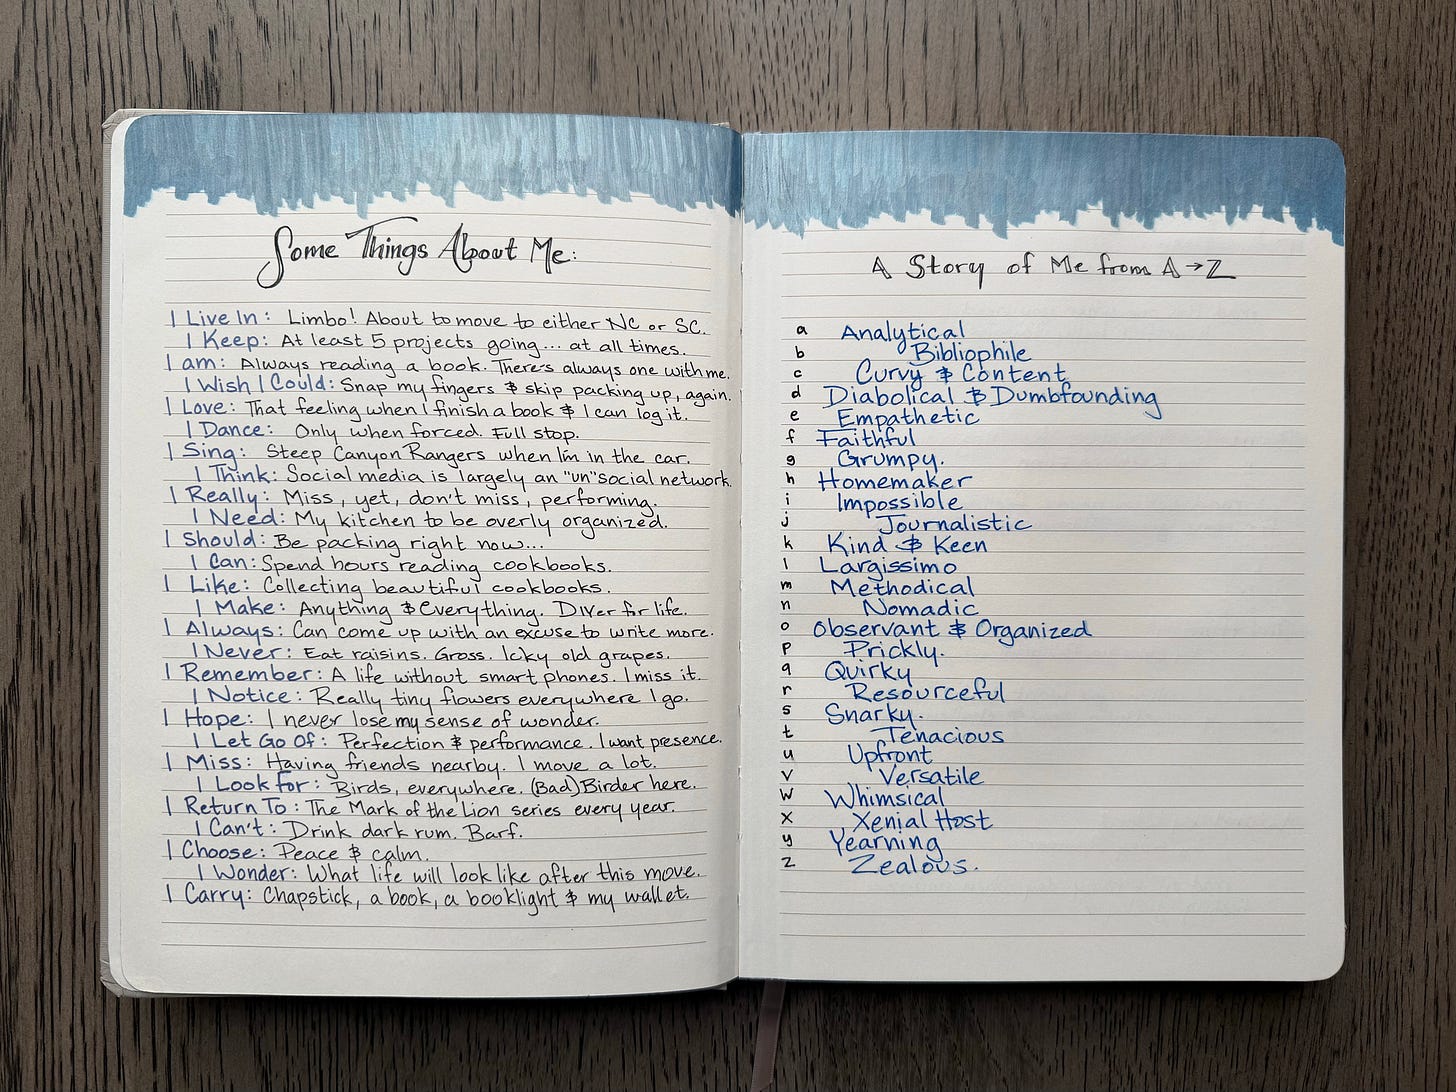 Some Things About Me:
I Live In: Limbo! About to move to either NC or SC.
I Keep: At least 5 projects going... at all times.
I am: Always reading a book. There's always one with me.
I Wish I Could: Snap my fingers & skip packing up, again.
I Love: That feeling when I finish a book & I can log it.
I Dance: Only when forced. Full stop.
I Sing: Steep Canyon Rangers when I'm in the car.
I Think: Social media is largely an "un"social network.
I Really: Miss, yet, don't miss, performing.
I Need: My kitchen to be overly organized.
I Should: Be packing right now...
I Can: Spend hours reading cookbooks.
I Like: Collecting beautiful cookbooks.
I Make: Anything & Everything. DIYer for life.
I Always: Can come up with an excuse to write more.
I Never: Eat raisins. Gross. Icky old grapes.
I Remember: A life without smart phones. I miss it.
I Notice: Really tiny flowers everywhere I go.
I Hope: I never lose my sense of wonder.
I Let Go Of: Perfection & performance. I want presence.
I Miss: Having friends nearby. I move a lot.
I Look For: Birds, everywhere. (Bad) Birder here.
I Return To: The Mark of the Lion series every year.
I Can't: Drink dark rum. Barf.
I Choose: Peace & calm.
I Wonder: What life will look like after this move.
I Carry: Chapstick, a book, a booklight & my wallet.
A Story of Me from A→Z
a Analytical
b Bibliophile
c Curvy & Content
d Diabolical & Dumbfounding
e Empathetic
f Faithful
g Grumpy.
h Homemaker
i Impossible
j Journalistic
k Kind & Keen
l Largissimo
m Methodical
n Nomadic
o Observant & Organized
p Prickly.
q Quirky
r Resourceful
s Snarky.
t Tenacious
u Upfront
v Versatile
w Whimsical
x Xenial Host
y Yearning
z Zealous.